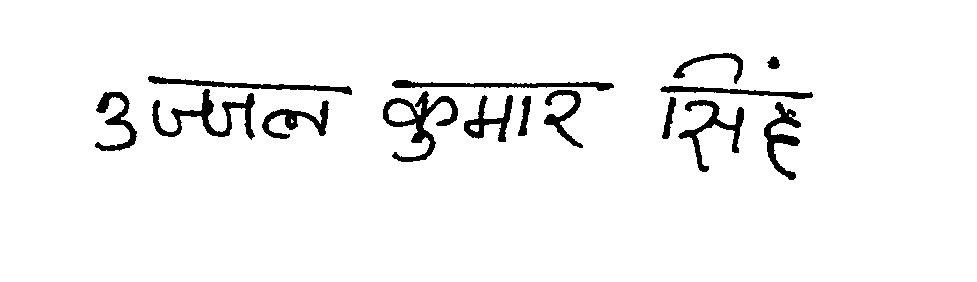 उज्जल कुमार सिंह